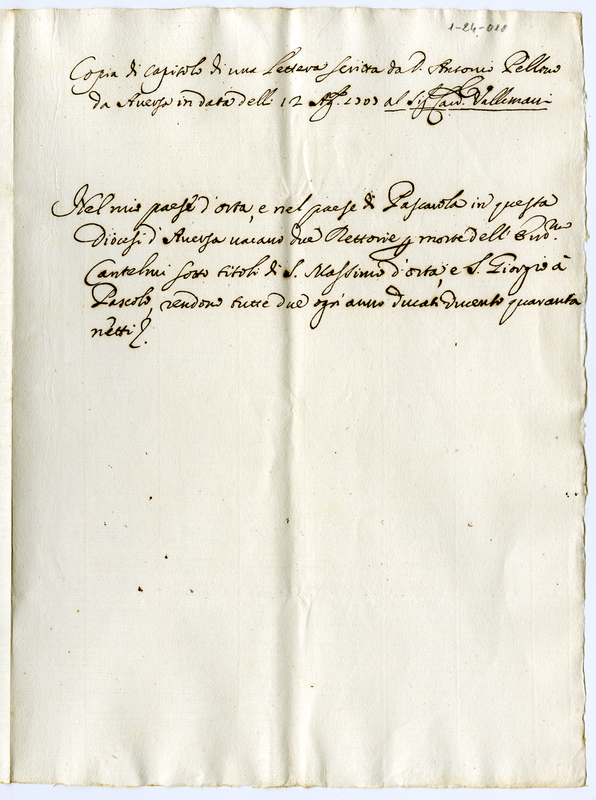 1-24-010
Copia di Capitolo di una Lettera scritta da D. Antonio Pellino
da Aversa in data delli 12 Ag.
al Sig. Card. Vallemani
Nel mio paese d'orta, e nel paese di Pascarola in questa
Diocesi d'Aversa vacano due Rettorie p morte dell' Em.mo
Cantelmi sotto titoli di S. Massimo d'orta, e S. Giorgio à
Pascolo, rendono tutte due ogn'anno ducati ducento quaranta
netti